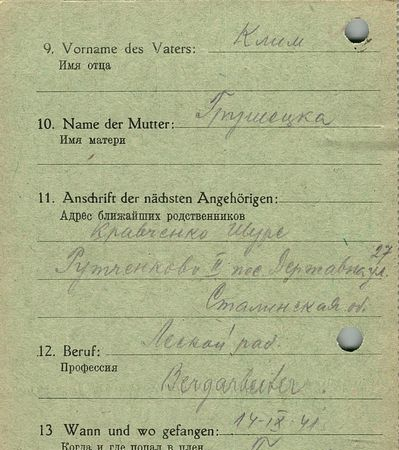 9. Vorname des Vaters: Клим
Имя отца
10. Name der Mutter: Грушецка
Имя матери
11. Anschrift der nächsten Angehörigen:
Адрес ближайших родственников
Кравченко Шуре
27
Рутченково II пос Державна ул.
Сталинская об.
12. Beruf: раб.
Профессия
Bergarbeiter.
13 Wann und wo gefangen: 14-IX-41
Когда и где попал в плен